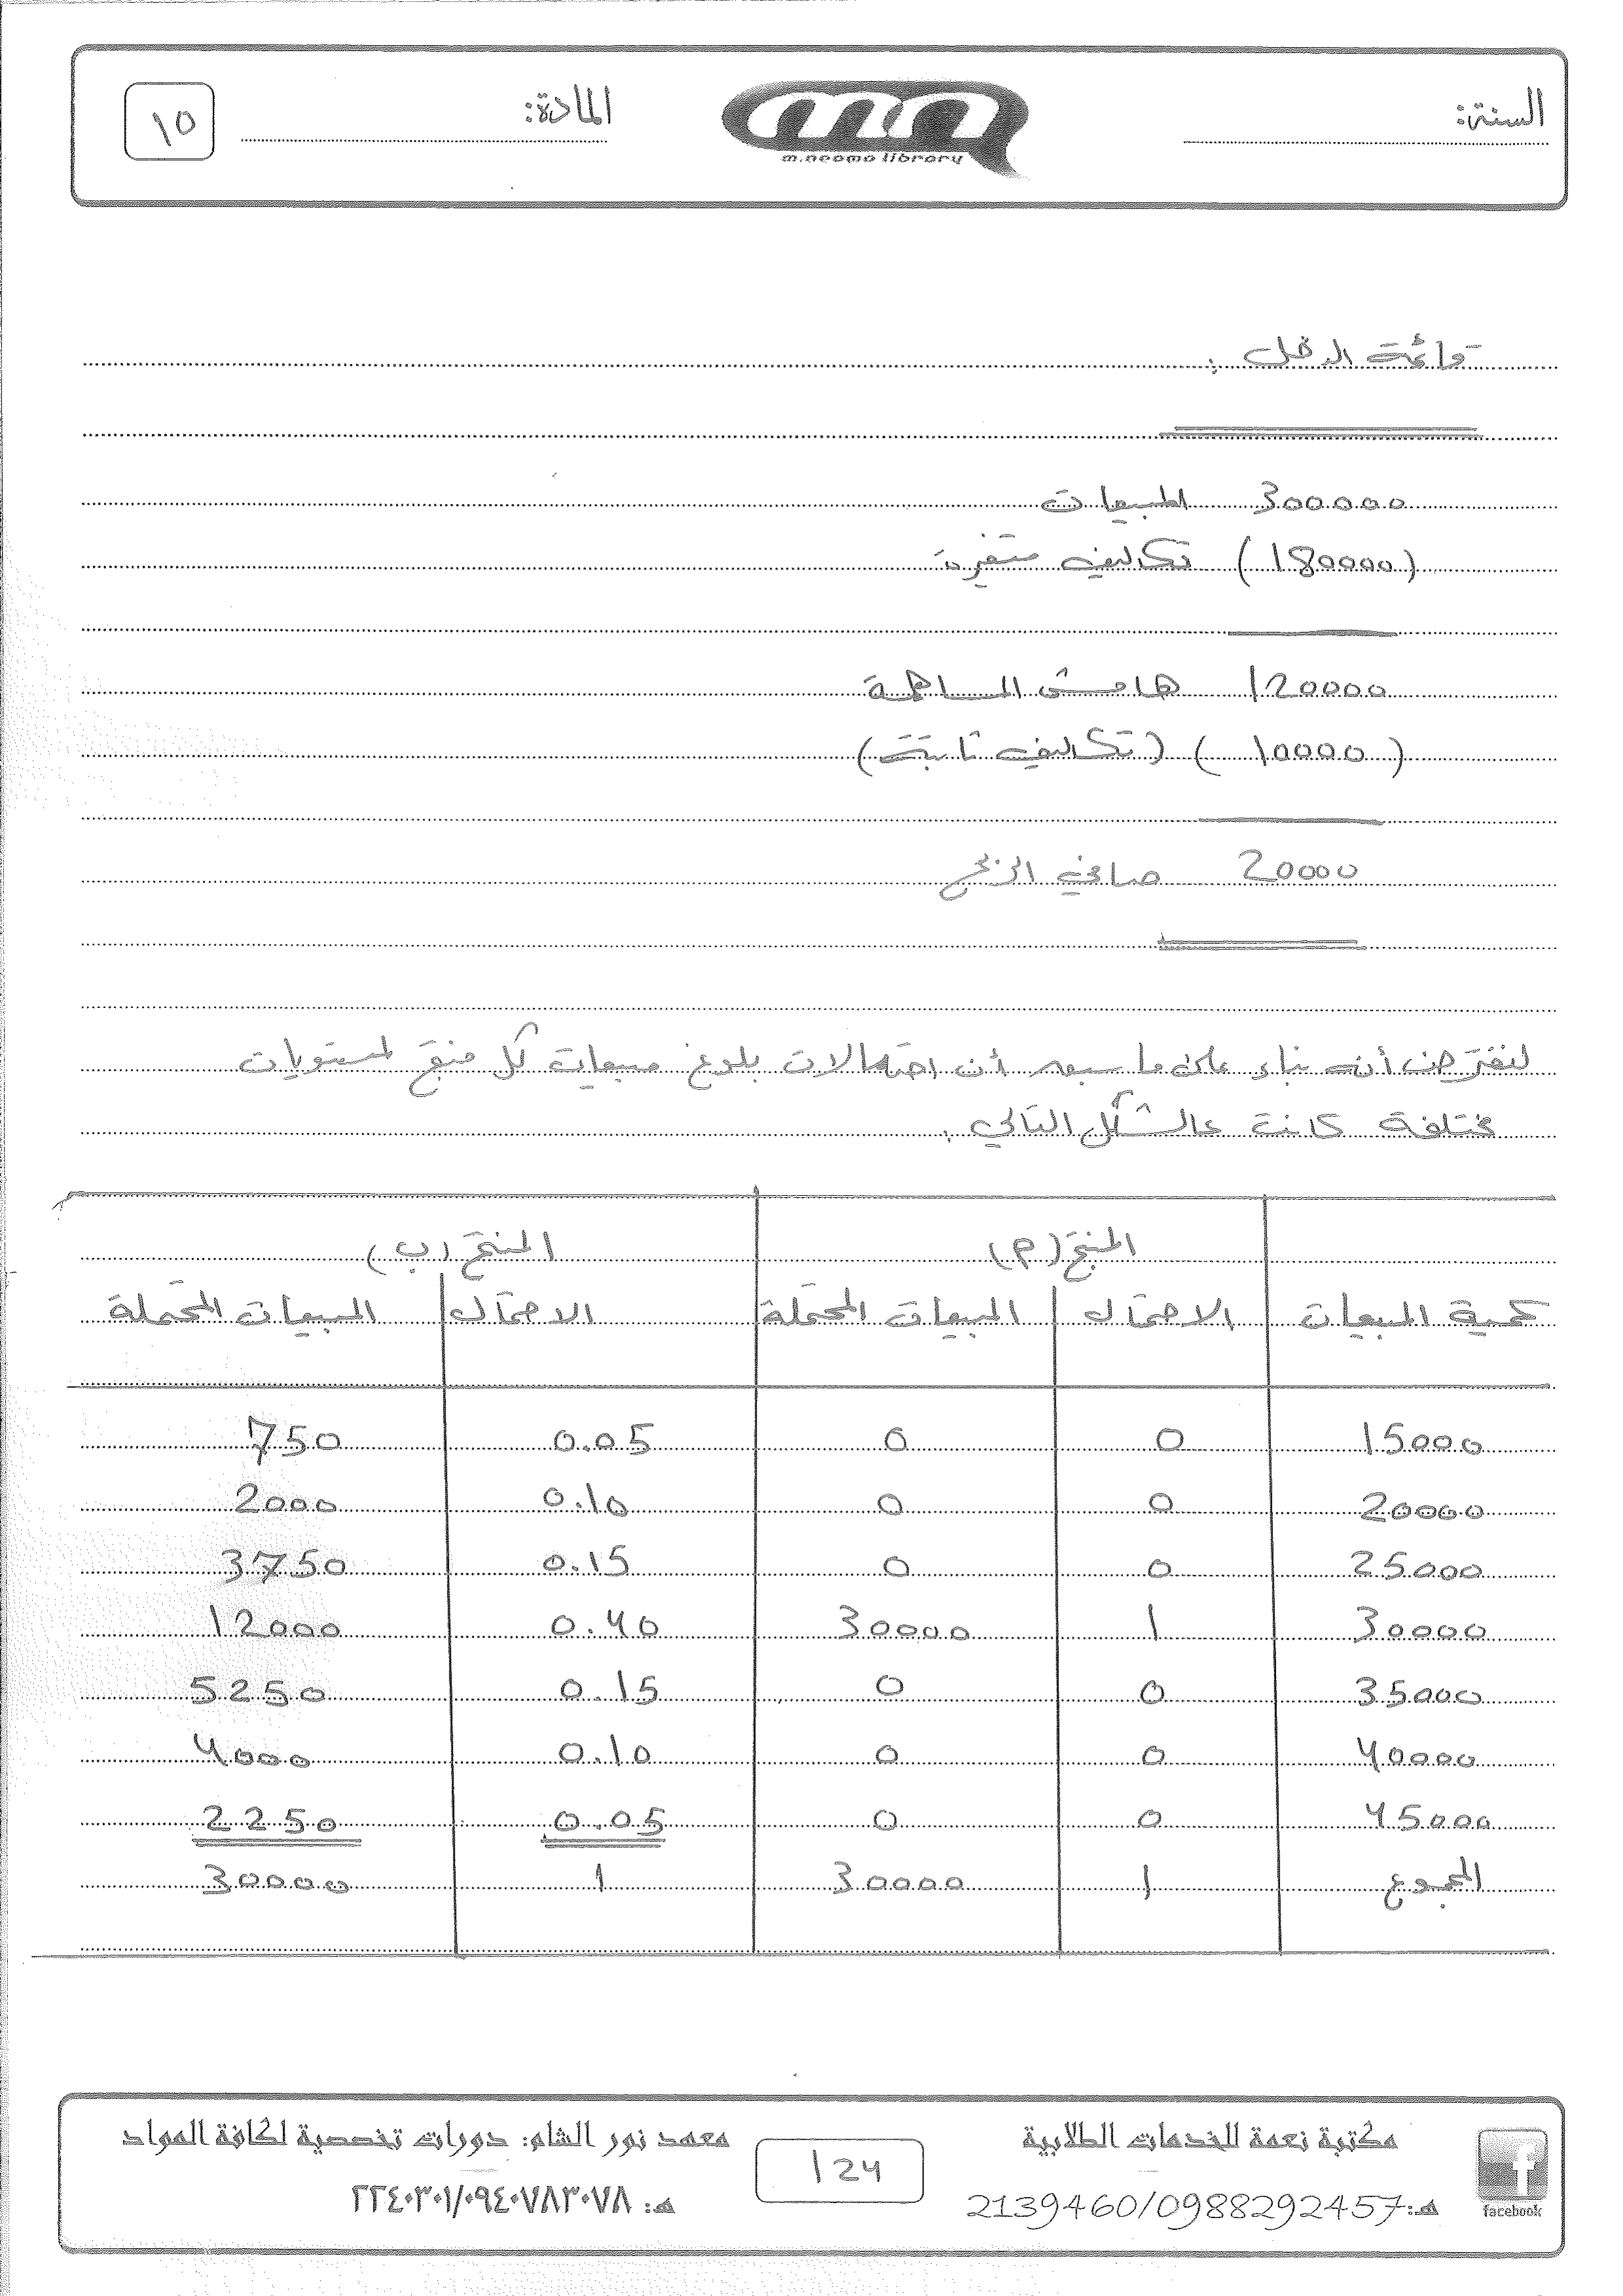 السنة:
m.neoma library
المادة:
١٥
قائمة الدخل :
300000 المبيعات
(180000) تكاليف متغيرة
120000 هامش المساهمة
(10000) (تكاليف ثابتة)
20000 صافي الربح
لنفترض أنه بناء على ما سبق أن احتمالات بلوغ مبيعات كل منتج لمستويات
مختلفة كانت كالشكل التالي :
المنتج (م) المنتج (ب)
كمية المبيعات الاحتمال المبيعات المحتملة الاحتمال المبيعات المحتملة
15000 0 0 0.05 750
20000 0 0 0.10 2000
25000 0 0 0.15 3750
30000 1 30000 0.40 12000
35000 0 0 0.15 5250
40000 0 0 0.10 4000
45000 0 0 0.05 2250
المجموع 1 30000 1 30000
facebook
مكتبة نعمة للخدمات الطلابية
هـ:2139460/0988292457
124
معهد نور الشام: دورات تخصصية لكافة المواد
هـ: ٢٢٤٠٣٠١/٠٩٤٠٧٨٣٠٧٨